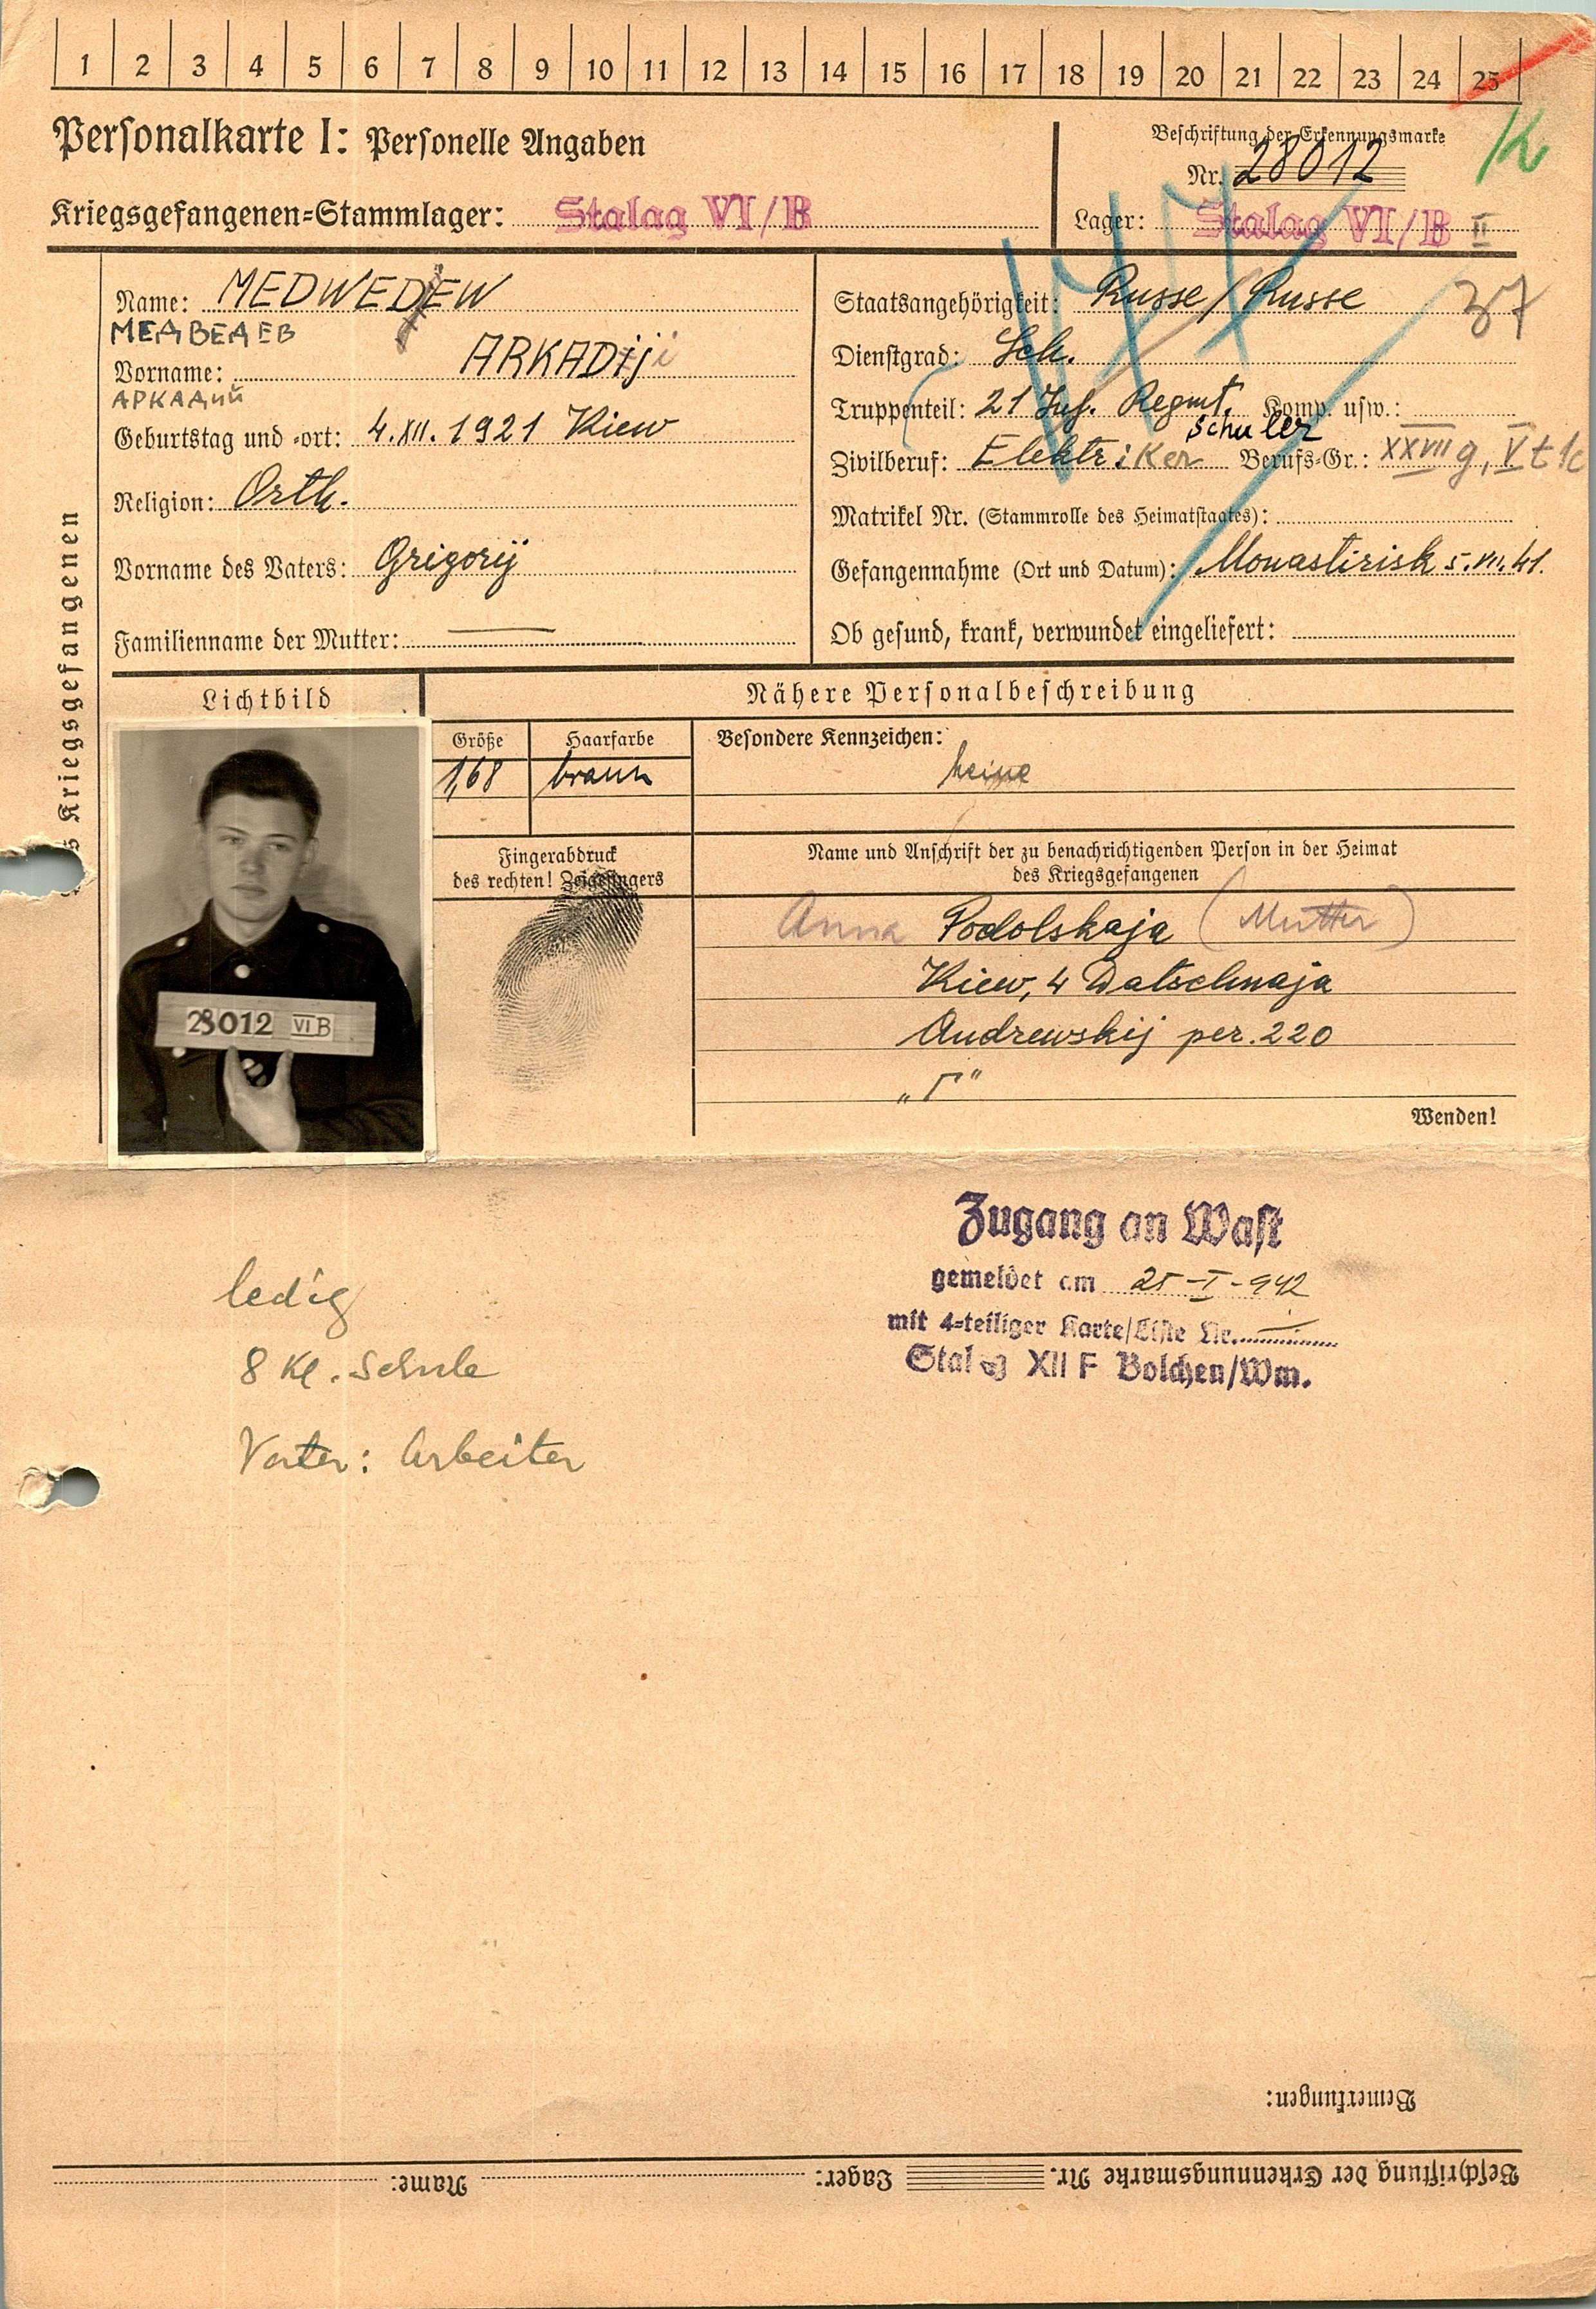 1 2 3 4 5 6 7 8 9 10 11 12 13 14 15 16 17 18 19 20 21 22 23 24 25
Personalkarte I: Personelle Angaben
Kriegsgefangenen-Stammlager: Stalag VI/B
Beschriftung der Erkennungsmarke
Nr. 28012
K
Lager: Stalag VI/B II
Name: MEDWEDEW
МЕДВЕДЕВ
Vorname: ARKADIJ
АРКАДИЙ
Geburtstag und -ort: 4.XII.1921 Kiew
Religion: Orth.
Vorname des Vaters: Grigorij
Familienname der Mutter: —
Staatsangehörigkeit: Russe/Russe 37
Dienstgrad: Sch.
Truppenteil: 21 Inf. Regmt. Komp. usw.:
Schuler
Zivilberuf: Elektriker Berufs-Gr.: XXVII g, V
Matrikel Nr. (Stammrolle des Heimatstaates):
Gefangennahme (Ort und Datum): Monastirisk 5.VII.41.
Ob gesund, krank, verwundet eingeliefert:
s Kriegsgefangenen
Lichtbild
Nähere Personalbeschreibung
Größe
1,68
Haarfarbe
braun
Besondere Kennzeichen:
keine
Fingerabdruck
des rechten! Zeigefingers
Name und Anschrift der zu benachrichtigenden Person in der Heimat
des Kriegsgefangenen
Anna Podolskaja (Mutter)
Kiew, 4 Datschnaja
Andrewskij per. 220
„Г"
28012 VI B
Wenden!
Zugang an Wast
gemeldet am 25-I-942
mit 4-teiliger Karte/Liste Nr.
Stalag XII F Bolchen/Wm.
ledig
8 Kl. Schule
Vater: Arbeiter
Bemerkungen:
Beschriftung der Erkennungsmarke Nr. Lager: Name: